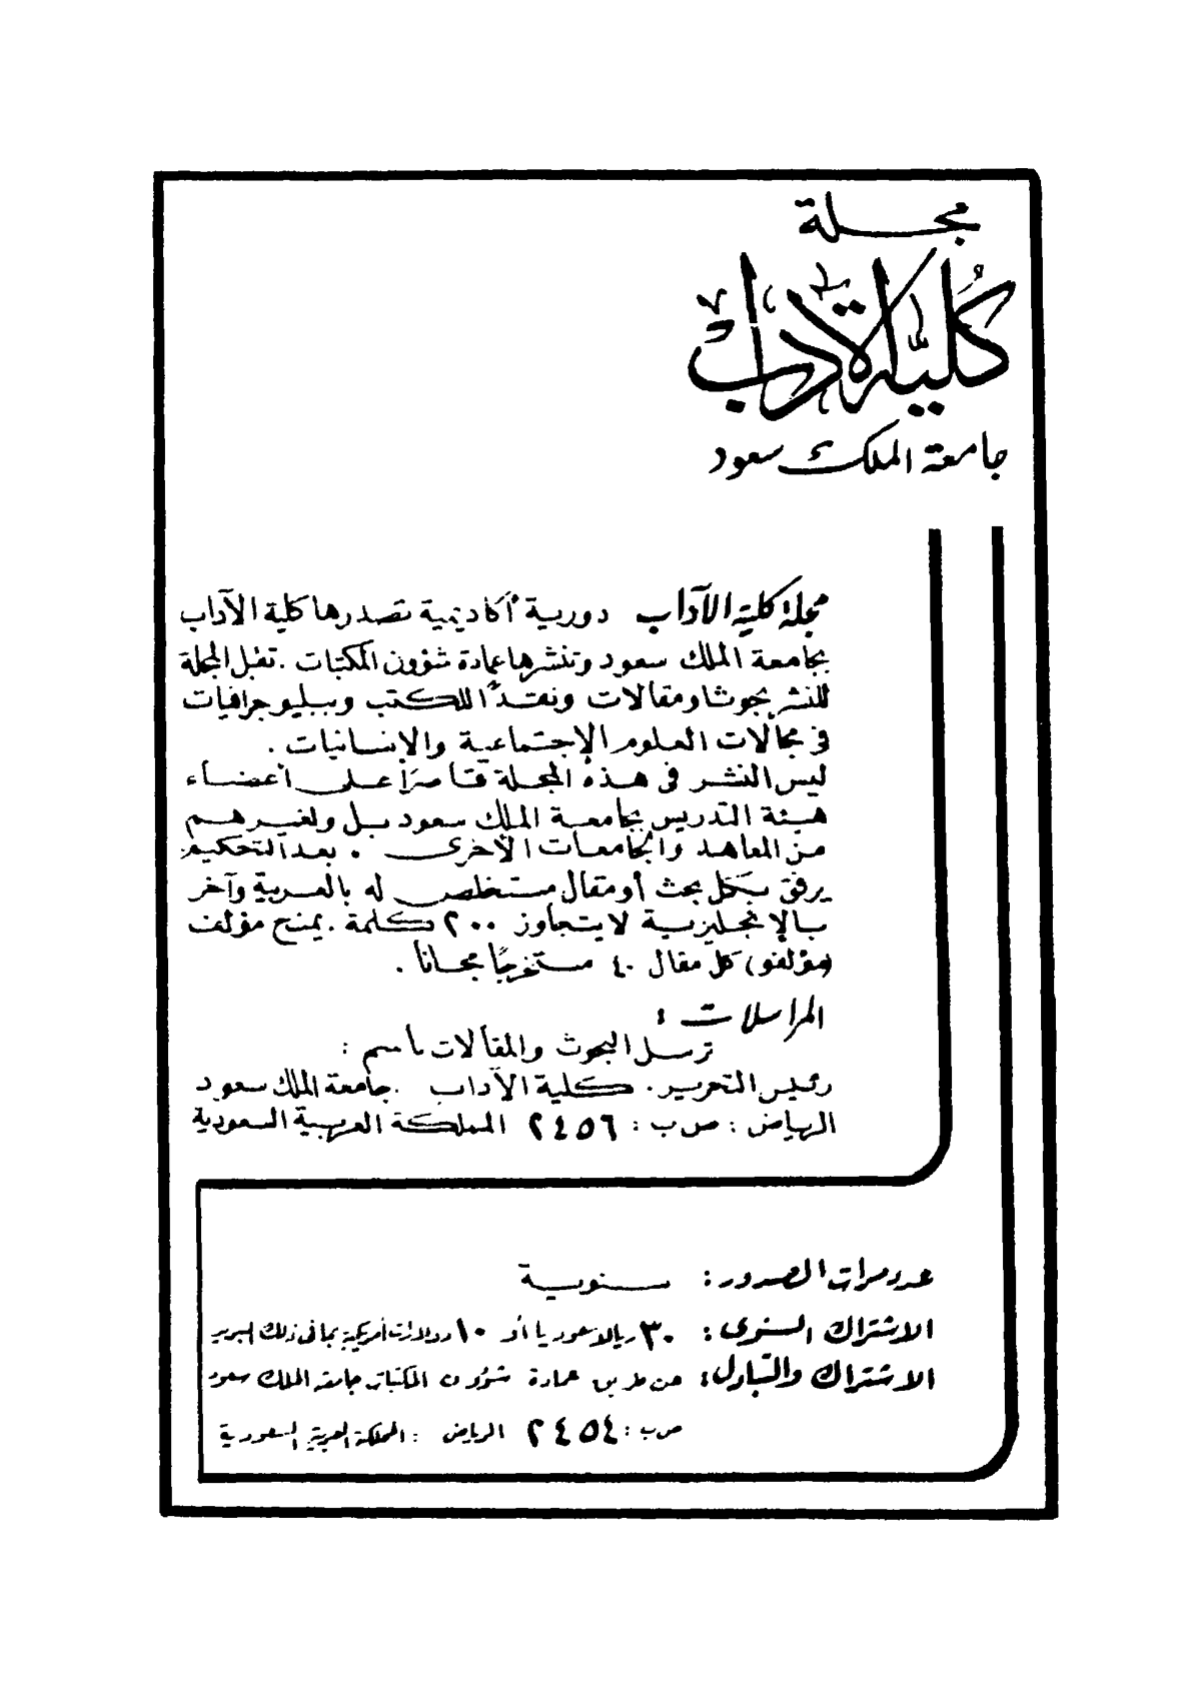 مجلة
كُليّة الآداب
جامعة الملك سعود
مجلة كلية الآداب دورية أكاديمية تصدرها كلية الآداب
بجامعة الملك سعود وتنشرها عمادة شؤون المكتبات . تقبل المجلة
للنشر بحوثا ومقالات ونقدًا للكتب وببليوجرافيات
في مجالات العلوم الإجتماعية والإنسانيات .
ليس النشر في هذه المجلة قاصرًا على أعضاء
هيئة التدريس بجامعة الملك سعود بل ولغيرهم
من المعاهد والجامعات الأخرى . بعد التحكيم
يرفق بكل بحث أو مقال مستخلص له بالعربية وآخر
بالإنجليزية لا يتجاوز ٢٠٠ كلمة . يمنح مؤلف
(مؤلفو) كل مقال ٤٠ مستخرجًا مجانًا .
المراسلات :
ترسل البحوث والمقالات باسم :
رئيس التحرير . كلية الآداب . جامعة الملك سعود
الرياض : ص ب : ٢٤٥٦ المملكة العربية السعودية
عدد مرات الصدور : سنوية
الاشتراك السنوى : ٣٠ ريالا سعوديا أو ١٠ دولارات أمريكية بما في ذلك البريد
الاشتراك والتبادل : عن طريق عمادة شؤون المكتبات جامعة الملك سعود
ص ب : ٢٤٥٤ الرياض : المملكة العربية السعودية